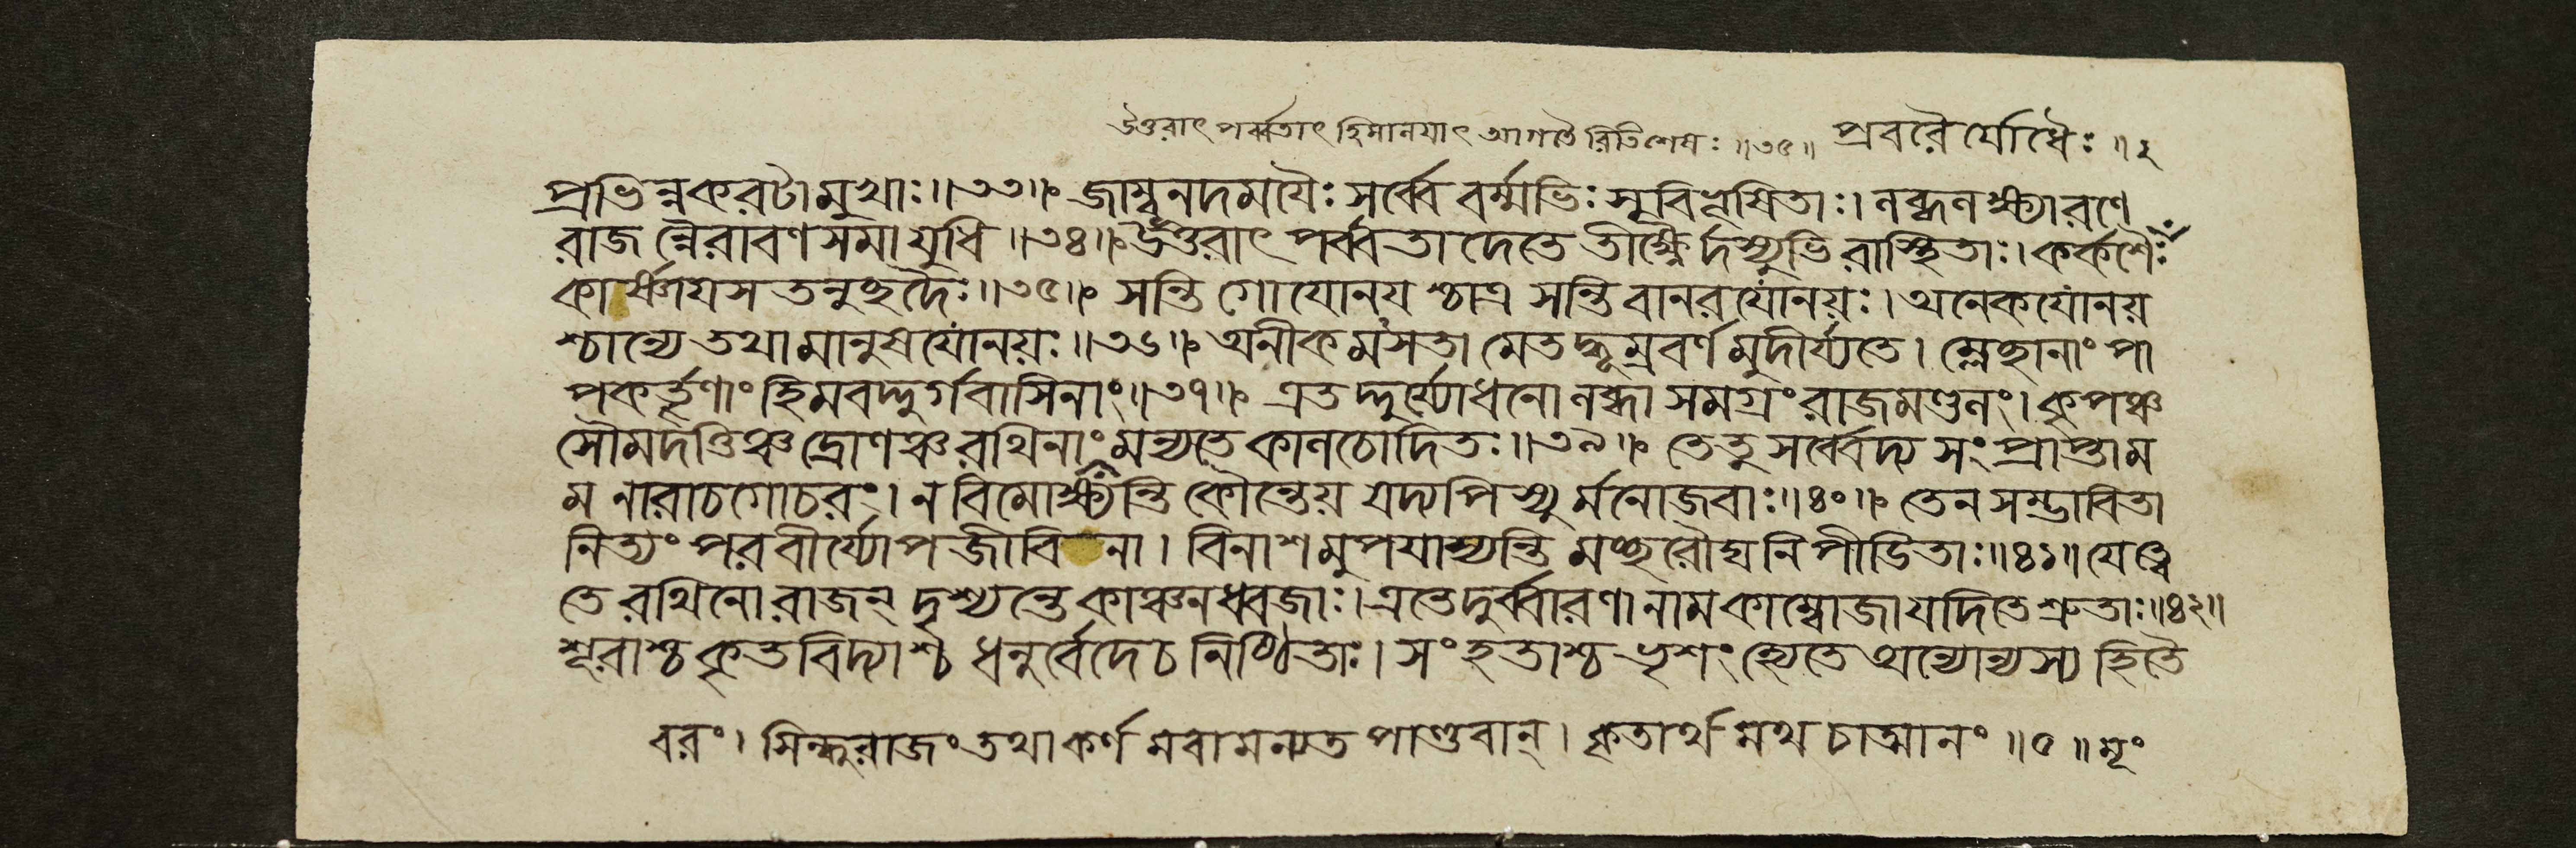 উত্তরাৎ পর্ব্বতাৎ হিমালয়াৎ আগতৈরিতিশেষঃ ॥৩৫॥ প্রবরৈর্যোধৈঃ ॥২
প্রভিন্নকরটামুখাঃ॥৩৩॥ জাম্বূনদময়ৈঃ সর্ব্বে বর্ম্মভিঃ সুবিভূষিতাঃ। লব্ধলক্ষ্যারণে
রাজন্নৈরাবণসমাযুধি॥৩৪॥ উত্তরাৎ পর্ব্বতাদেতে তীক্ষ্ণৈর্দস্যুভিরাস্থিতাঃ। কর্কশৈঃ
কার্ষ্ণায়সতনুচ্ছদৈঃ॥৩৫॥ সন্তি গোযোনয়শ্চাত্র সন্তি বানরযোনয়ঃ। অনেকযোনয়
শ্চান্যে তথামানুষযোনয়ঃ॥৩৬॥ অনীকমসতামেতদ্ধূম্রবর্ণমুদীর্য্যতে। ম্লেচ্ছানাং পা
পকর্ত্তৄণাং হিমবদ্দুর্গবাসিনাং॥৩৭॥ এতদ্দুর্য্যোধনো লব্ধা সমগ্রং রাজমণ্ডলং। কৃপঞ্চ
সৌমদত্তিঞ্চ দ্রোণঞ্চ রথিনাং মন্যতে কালচোদিতঃ॥৩৯॥ তেতু সর্ব্বেদ্য সংপ্রাপ্তাম
ম নারাচগোচরং। ন বিমোক্ষ্যন্তি কৌন্তেয় যদ্যপি স্যুর্মনোজবাঃ॥৪০॥ তেন সম্ভাবিতা
নিত্যং পরবীর্য্যোপজীবি না। বিনাশমুপযাস্যন্তি মচ্ছরৌঘনিপীডিতাঃ॥৪১॥ যেত্বে
তে রথিনো রাজন্ দৃশ্যন্তে কাঞ্চনধ্বজাঃ। এতেদুর্ব্বারণানামকাম্বোজাযদিতেশ্রুতাঃ॥৪২॥
শূরাশ্চকৃতবিদ্যাশ্চ ধনুর্বেদেচ নিষ্ঠিতাঃ। সংহতাশ্চ ভৃশং হ্যেতে অন্যোন্যস্য হিতৈ
বরং। সিন্ধুরাজং তথা কর্ণমবামন্যত পাণ্ডবান্। কৃতার্থমথ চাত্মানং ॥৫॥ মূং